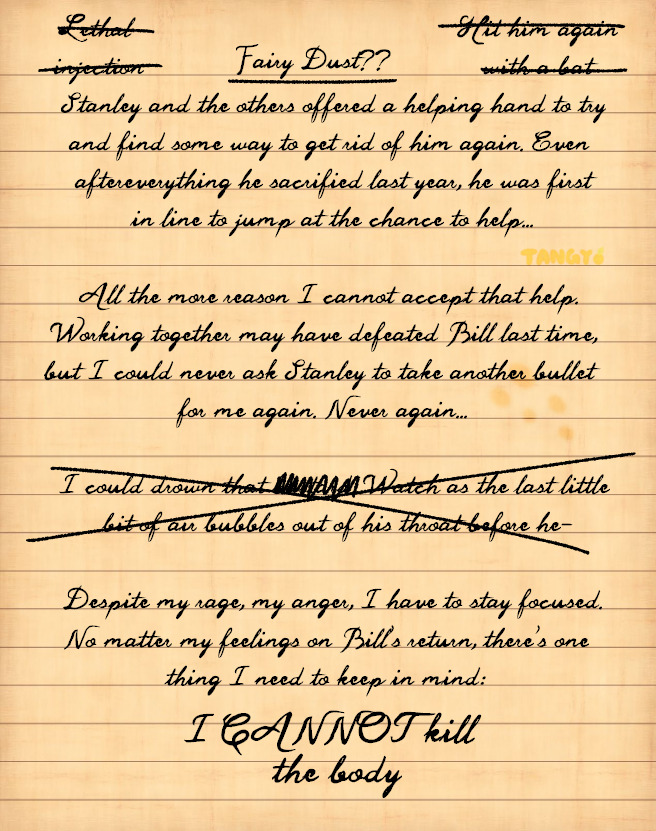 Lethal
injection
Hit him again
with a bat
Fairy Dust??
Stanley and the others offered a helping hand to try
and find some way to get rid of him again. Even
aftereverything he sacrified last year, he was first
in line to jump at the chance to help...
TANGYó
All the more reason I cannot accept that help.
Working together may have defeated Bill last time,
but I could never ask Stanley to take another bullet
for me again. Never again...
I could drown that Watch as the last little
bit of air bubbles out of his throat before he-
Despite my rage, my anger, I have to stay focused.
No matter my feelings on Bill's return, there's one
thing I need to keep in mind:
I CANNOT kill
the body